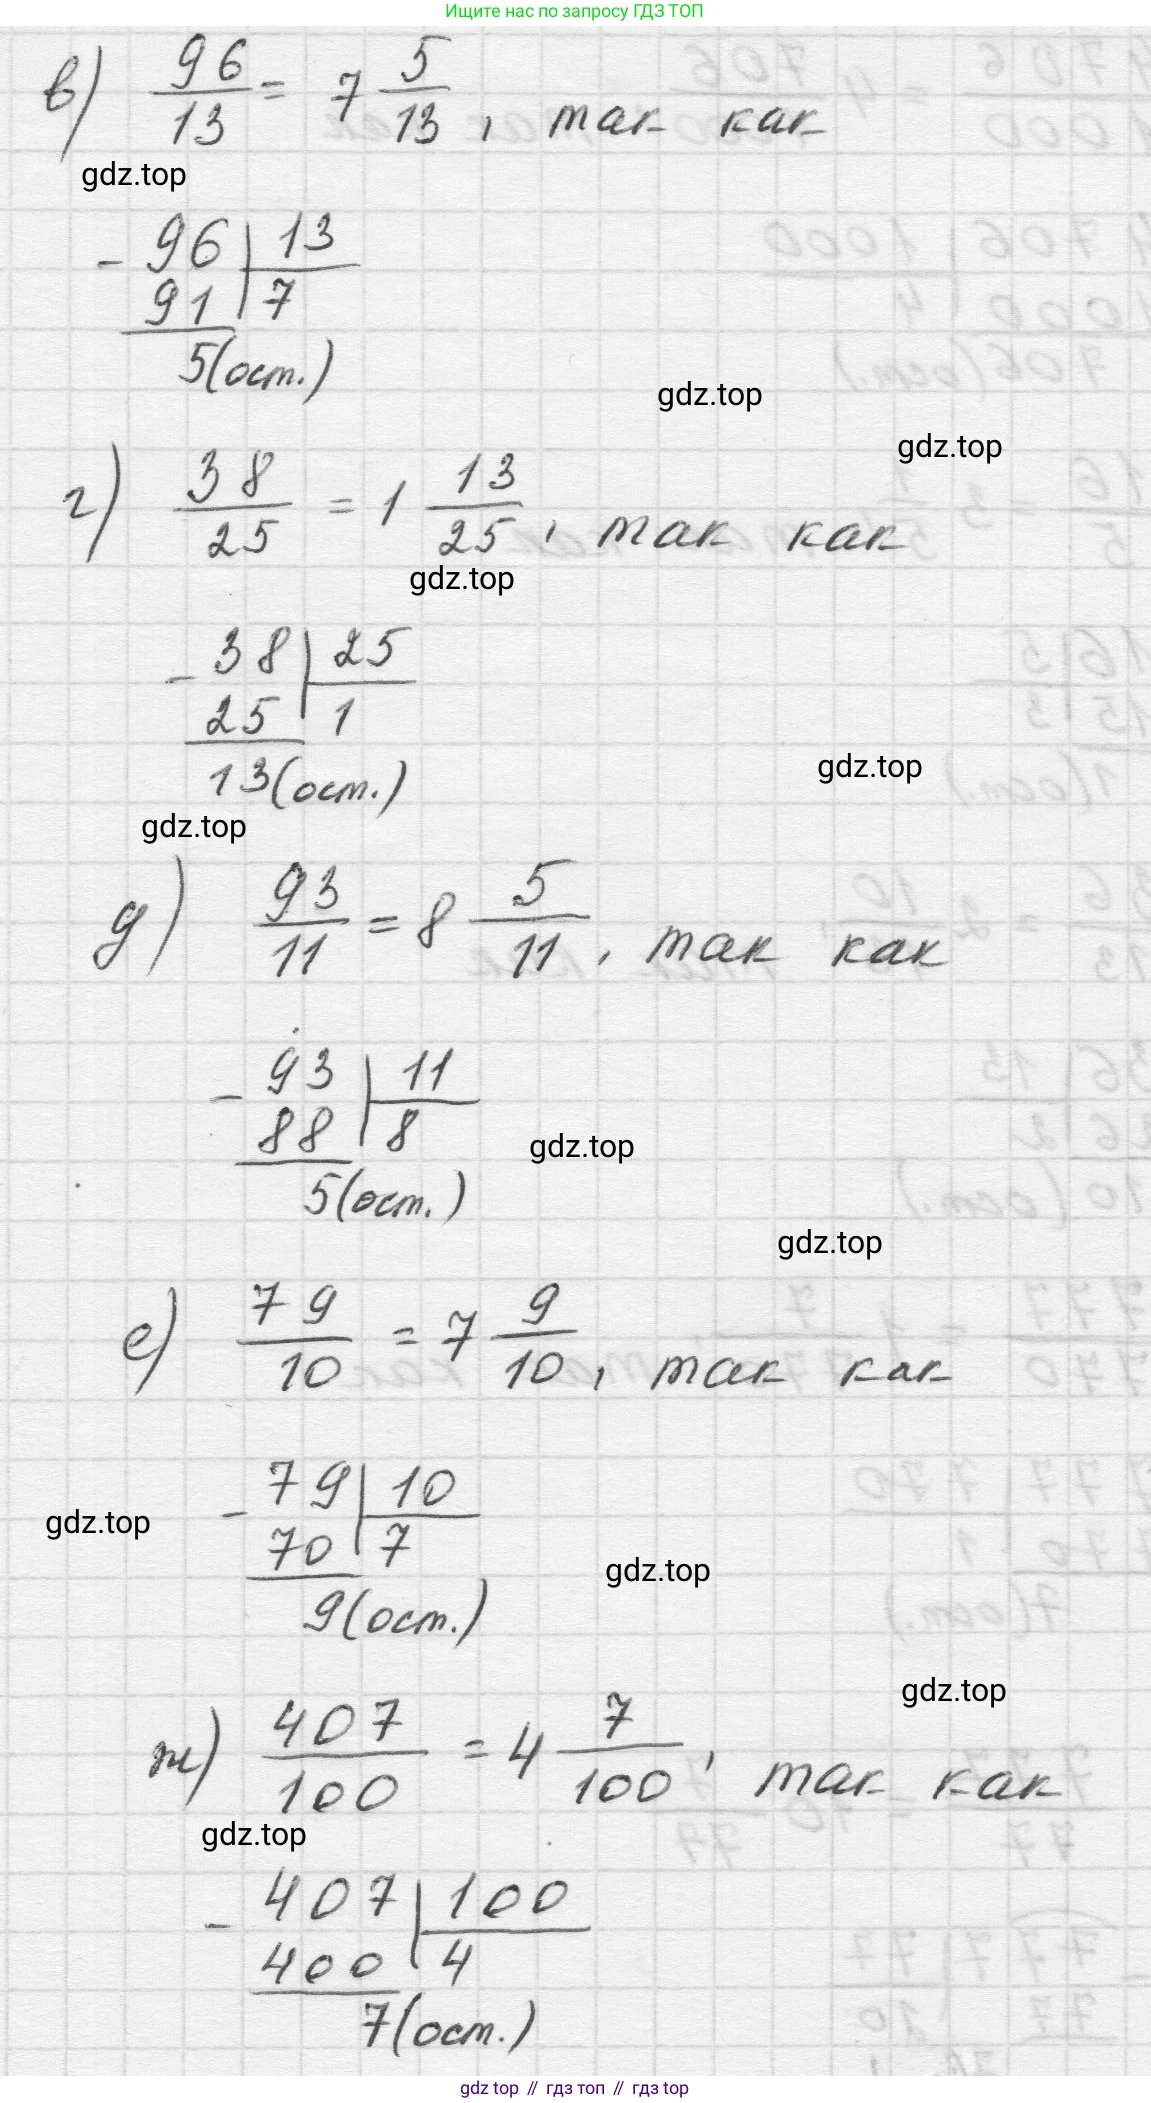 Ищите нас по запросу ГДЗ ТОП
в) 96/13 = 7 5/13, так как
gdz.top
- 96 | 13
91 | 7
5 (ост.)
gdz.top
gdz.top
г) 38/25 = 1 13/25, так как
gdz.top
- 38 | 25
25 | 1
gdz.top
13 (ост.)
gdz.top
д) 93/11 = 8 5/11, так как
- 93 | 11
88 | 8
gdz.top
5 (ост.)
gdz.top
е) 79/10 = 7 9/10, так как
- 79 | 10
gdz.top
70 | 7
gdz.top
9 (ост.)
gdz.top
ж) 407/100 = 4 7/100, так как
gdz.top
- 407 | 100
400 | 4
7 (ост.)
gdz top // гдз топ // gdz top